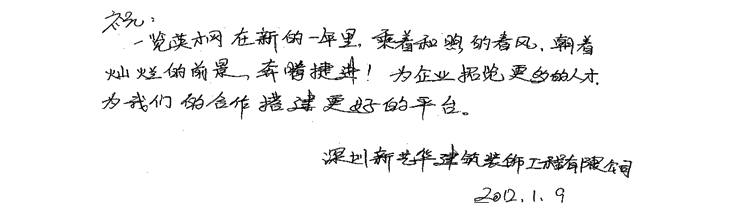 祝:
一览英才网在新的一年里,乘着和煦的春风,朝着
灿烂的前景,奔腾捷进!为企业招览更多的人才.
为我们的合作搭建更好的平台。
深圳新艺华建筑装饰工程有限公司
2012.1.9